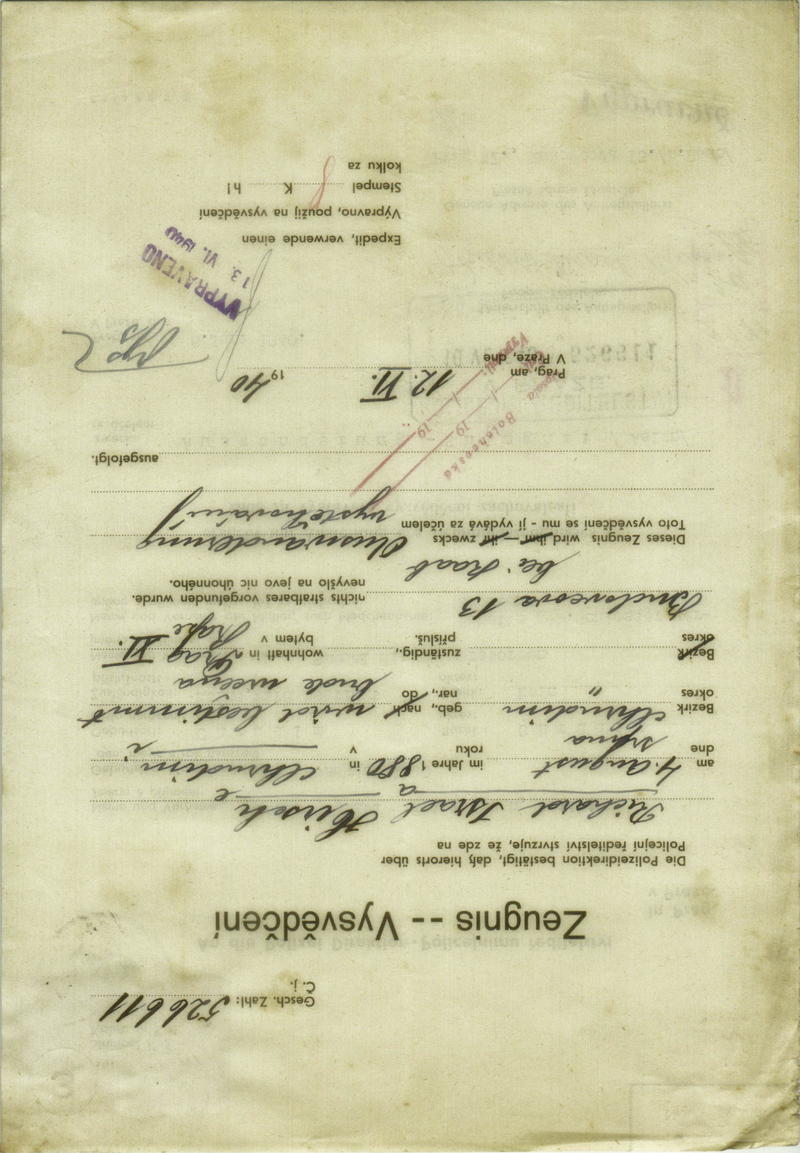 Gesch. Zahl: 526611
Č. j.
Zeugnis -- Vysvědčení
Die Polizeidirektion bestätigt, daß hierorts über
Policejní ředitelství stvrzuje, že zde na
Richard Israel Hirsch
a e
am 4. August im Jahre 1880 in Chrudim
dne srpna roku v i
Bezirk Chrudim geb., nach wird bestimmt
okres " nar., do bude určena
Bezirk zuständig., wohnhaft in Prag XI.
okres přísluš. bytem v Praze
13 nichts strafbares vorgefunden wurde.
nevyšlo na jevo nic úhonného.
bei
Dieses Zeugnis wird ihm — ihr zwecks Auswanderung
Toto vysvědčení se mu - jí vydává za účelem vystěhování
ausgefolgt.
Prag, am 12. VI. 1940
V Praze, dne
19
19
VYPRAVENO
13. VI. 1940
Expedit, verwende einen
Výpravno, použij na vysvědčení
Stempel K h!
kolku za